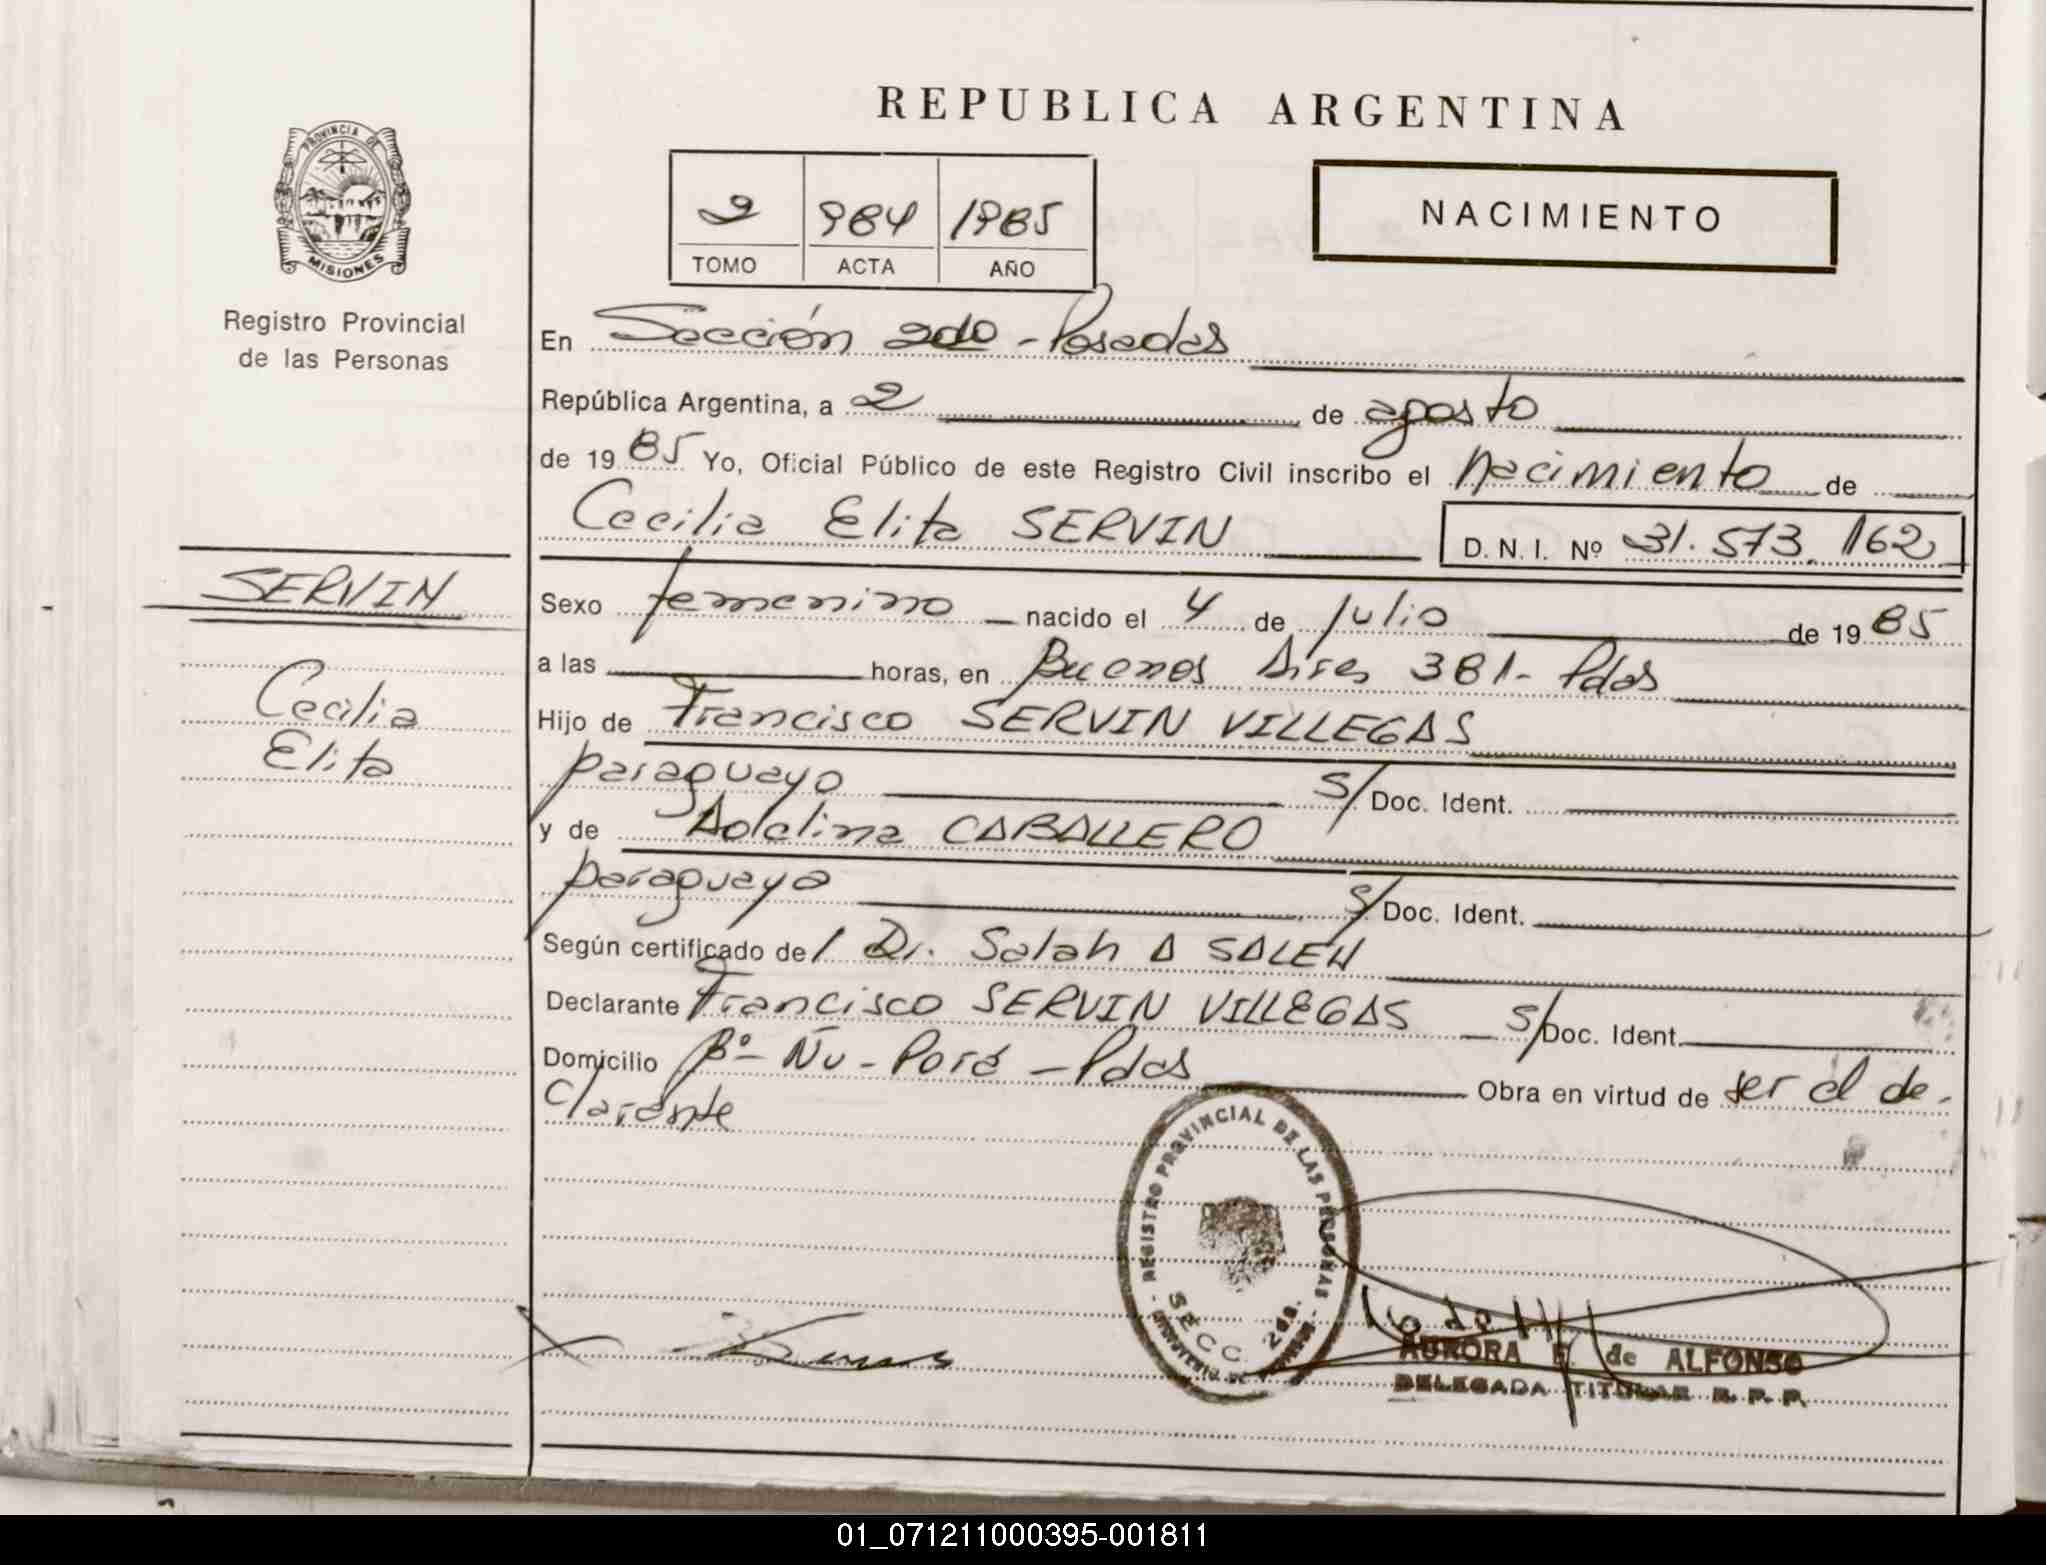 REPUBLICA ARGENTINA
PROVINCIA DE
MISIONES
Registro Provincial
de las Personas
2 984 1985
TOMO ACTA AÑO
NACIMIENTO
En Sección 2do - Posadas
República Argentina, a 2 de agosto
de 19 85 Yo, Oficial Público de este Registro Civil inscribo el nacimiento de
Cecilia Elita SERVIN D. N. I. Nº 31.573.162
SERVIN
Cecilia
Elita
Sexo femenino nacido el 4 de julio de 19 85
a las horas, en Buenos Aires 381- Pdas
Hijo de Francisco SERVIN VILLEGAS
paraguayo S/ Doc. Ident.
y de Adelina CABALLERO
paraguaya S/ Doc. Ident.
Según certificado de / Dr. Salah A SALEH
Declarante Francisco SERVIN VILLEGAS S/ Doc. Ident.
Domicilio Bº- Ñu - Porá - Pdas Obra en virtud de ser él de-
clarante
REGISTRO PROVINCIAL DE LAS PERSONAS
SECC. 2da.
AURORA de ALFONSO
DELEGADA TITULAR R. P. P.
01_071211000395-001811